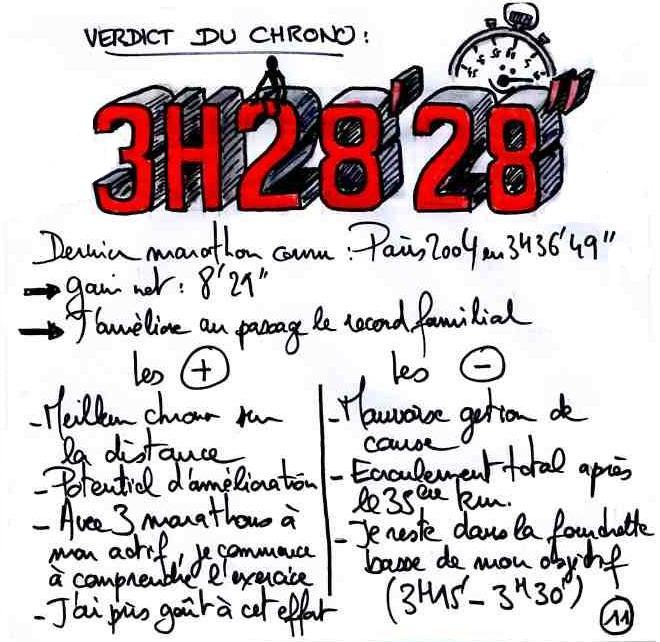 VERDICT DU CHRONO :
3H28'28"
Dernier marathon couru : Paris 2004 en 3H36'49"
→ gain net : 8'21"
→ J'améliore au passage le record familial
les +
- Meilleur chrono sur
la distance
- Potentiel d'amélioration
- Avec 3 marathons à
mon actif, je commence
à comprendre l'exercice
- J'ai pris goût à cet effort
les -
- Mauvaise gestion de
course
- Ecroulement total après
le 35ème km.
- Je reste dans la fourchette
basse de mon objectif
(3H15' - 3H30')
11